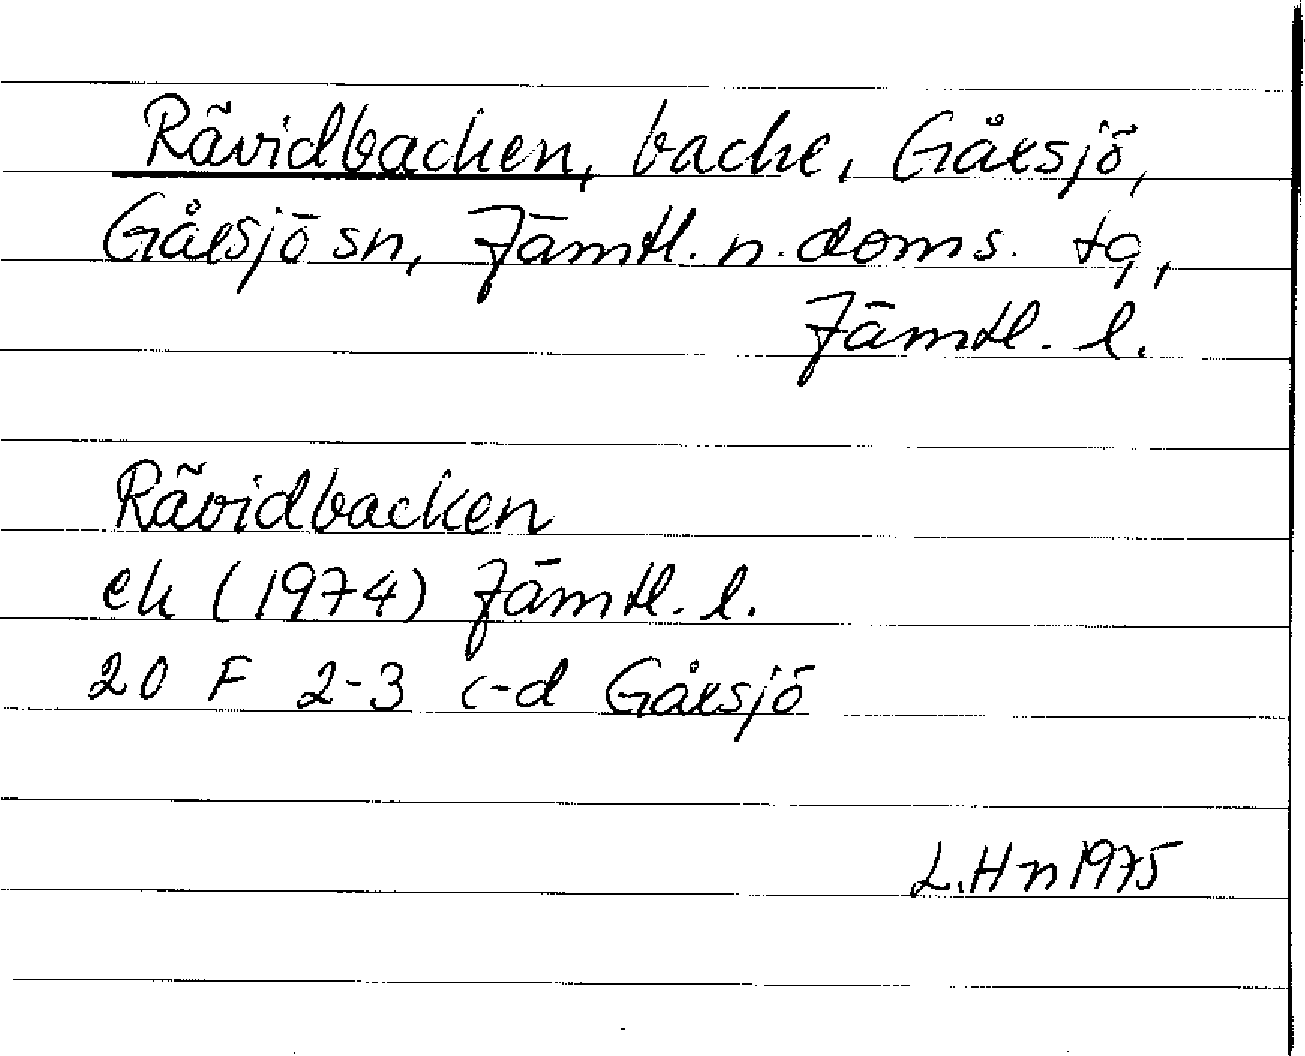 Rävidbacken, backe, Gåxsjö,
Gåxsjö sn, Jämtl. n. doms. tg,
Jämtl. l.
Rävidbacken
ek (1974) Jämtl. l.
20 F 2-3 c-d Gåxsjö
L.Hn 1975